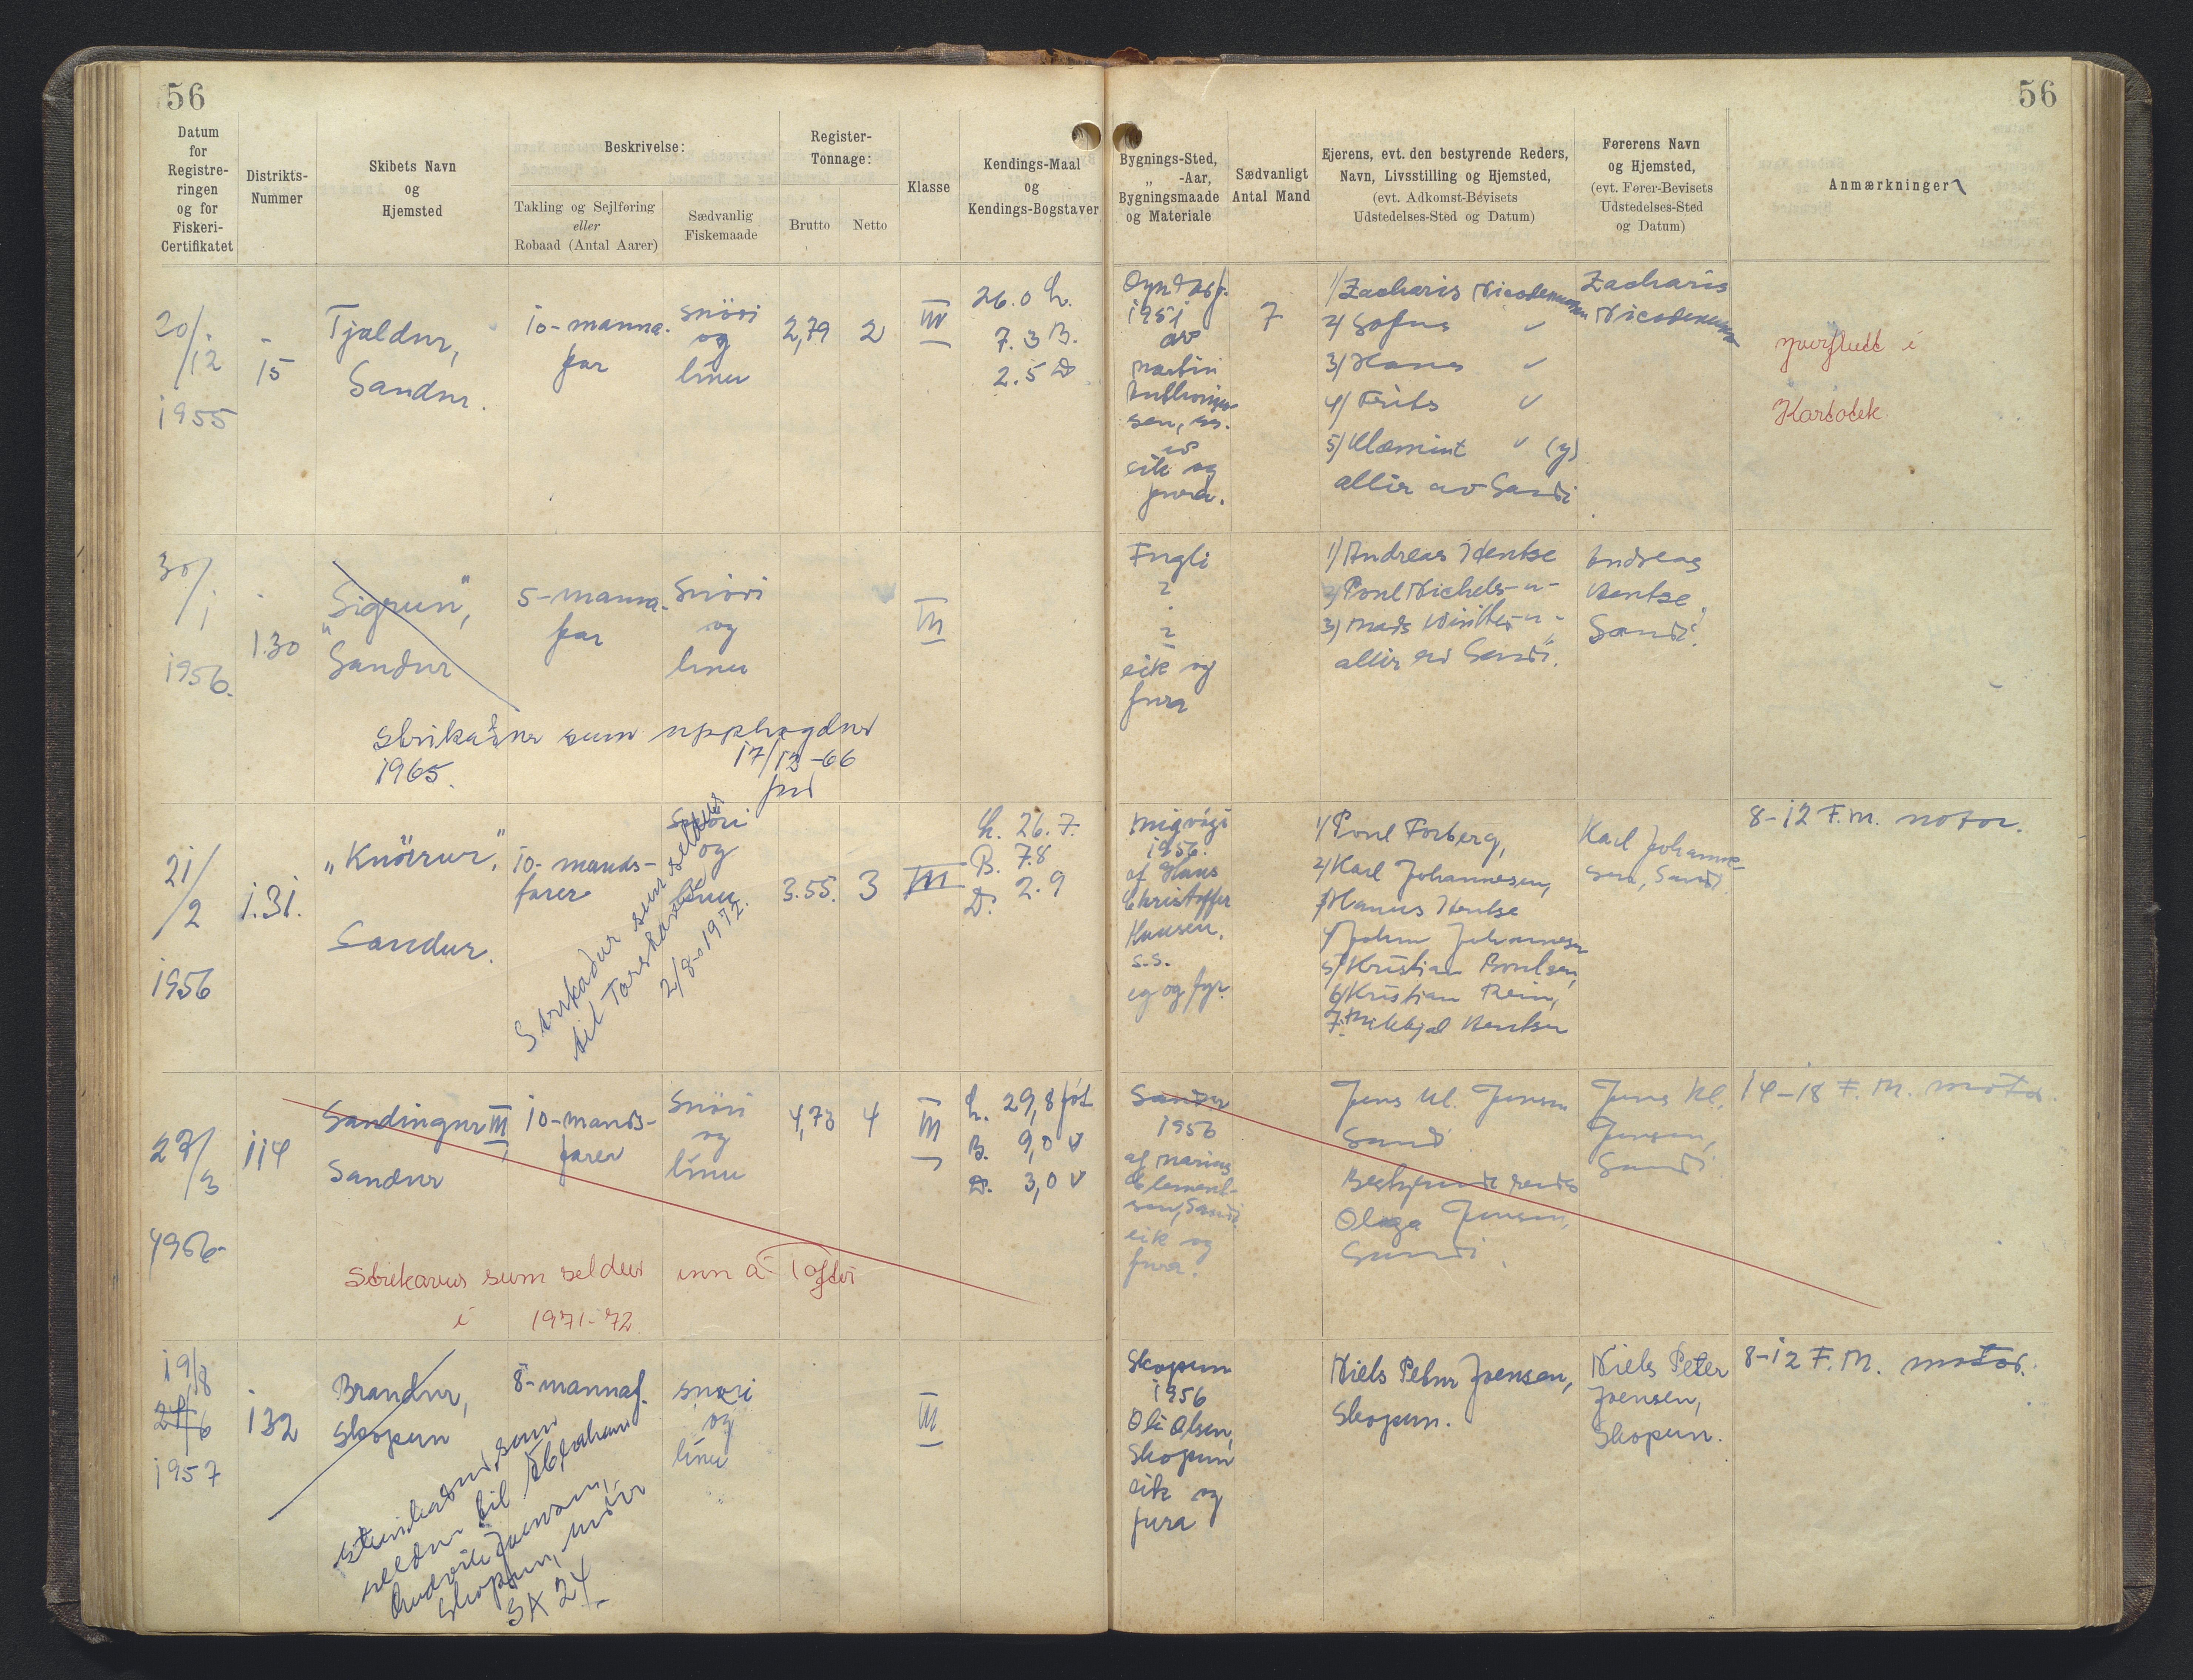 56
56
Datum
for
Registre-
ringen
og for
Fiskeri-
Certifikatet
Distrikts-
Nummer
Skibets Navn
og
Hjemsted
Beskrivelse:
Takling og Sejlføring
eller
Robaad (Antal Aarer)
Sædvanlig
Fiskemaade
Register-
Tonnage:
Brutto
Netto
Klasse
Kendings-Maal
og
Kendings-Bogstaver
Bygnings-Sted,
„ -Aar,
Bygningsmaade
og Materiale
Sædvanligt
Antal Mand
Ejerens, evt. den bestyrende Reders,
Navn, Livsstilling og Hjemsted,
(evt. Adkomst-Bevisets
Udstedelses-Sted og Datum)
Førerens Navn
og Hjemsted,
(evt. Fører-Bevisets
Udstedelses-Sted
og Datum)
Anmærkninger
20/12
1955
15
Tjaldur,
Sandur.
10-manna-
far
snöri
og
línu
2,79
2
III
26.0 L.
7.3 B.
2.5 D
1951
av
Martin
eik og
fura.
7
1/ Zacharis Nicodemusen
2/ Sofus "
3/ Hans "
4/ Frits "
5/ Klæmint " (y)
allir av Sandi
Zacharis
Nicodemusen
yvirflutt í
Kartotek
30/1
1956.
130
"Sigrun",
Sandur
5-manna-
far
Snöri
og
línu
III
Engli
?
?
eik og
fura
1/ Andreas Hentze
2/ Poul Michels -"-
3/ Mads Winther -"-
allir av Sandi.
Andreas
Hentze,
Sandi.
strikaður sum upphogdur
1965.
17/12-66
21/2
1956
131.
„Knörrur",
Sandur.
10-mands-
farer
Snöri
og
línu
3.55.
3
III
L. 26.7.
B. 7.8
D. 2.9
Strikaður sum seldur
til Torshavnar
2/8-1972.
Miðvági
1956.
af Hans
Christoffer
Hansen,
s.s.
eg og fyr.
1/ Poul Forberg,
2/ Karl Johannesen,
3/ Hanus Hentze
4/ John Johannesen
5/ Kristian Poulsen,
6/ Kristian Rein,
7. Mikkjal Hentze
Karl Johanne-
sen, Sandi.
8-12 F.M. motor.
27/3
1956
114
Sandingur III
Sandur
10-mands-
farer
Snöri
og
línu
4,73
4
III
L. 29,8 fót
B. 9,0 "
D. 3,0 "
Strikaður sum seldur inn á Toftir
í 1971-72
Sandur
1956
af Marius
Clement-
sen, Sandi
eik og
fura.
Jens Kl. Jensen
Sandi
Bestyrende reder
Olega Jensen,
Sandi.
Jens Kl.
Jensen,
Sandi
14-18 F.M. motor.
19/8
24/6
1957
132
Brandur,
Skopun
8-mannaf.
snøri
og
línu
III
strikaður sum
seldur til Abraham
Joensen,
Skopun, undir
SA 24
Skopun
1956
Oli Olsen,
Skopun
eik og
fura
Niels Petur Joensen,
Skopun.
Niels Peter
Joensen,
Skopun.
8-12 F.M. motor.